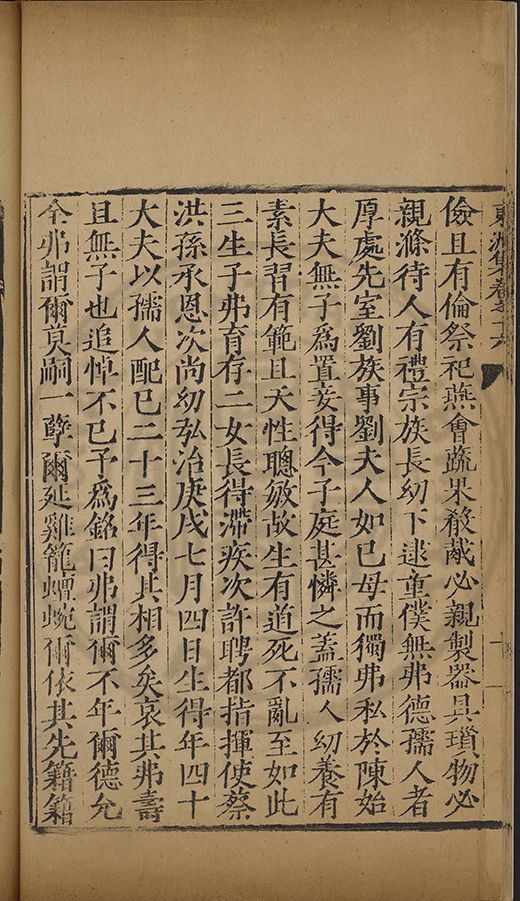 東集卷之十六
儉且有倫祭祀燕會蔬果殽胾必親製器具瑣物必
親滌待人有禮宗族長幼下逮童僕無弗德孺人者
厚處先室劉族事劉夫人如已母而獨弗私於陳始
大夫無子爲置妾得今子庭甚憐之蓋孺人幼養有
素長習有範且天性聰敏故生有道死不亂至如此
三生子弗育存二女長得滯疾次許聘都指揮使蔡
洪孫承恩次尚幼弘治庚戌七月四日生得年四十
大夫以孺人配已二十三年得其相多矣哀其弗壽
且無子也追悼不已予爲銘曰弗謂爾不年爾德允
全弗謂爾莫嗣一孽爾延雞籠蟺蜿爾依其先籍籍